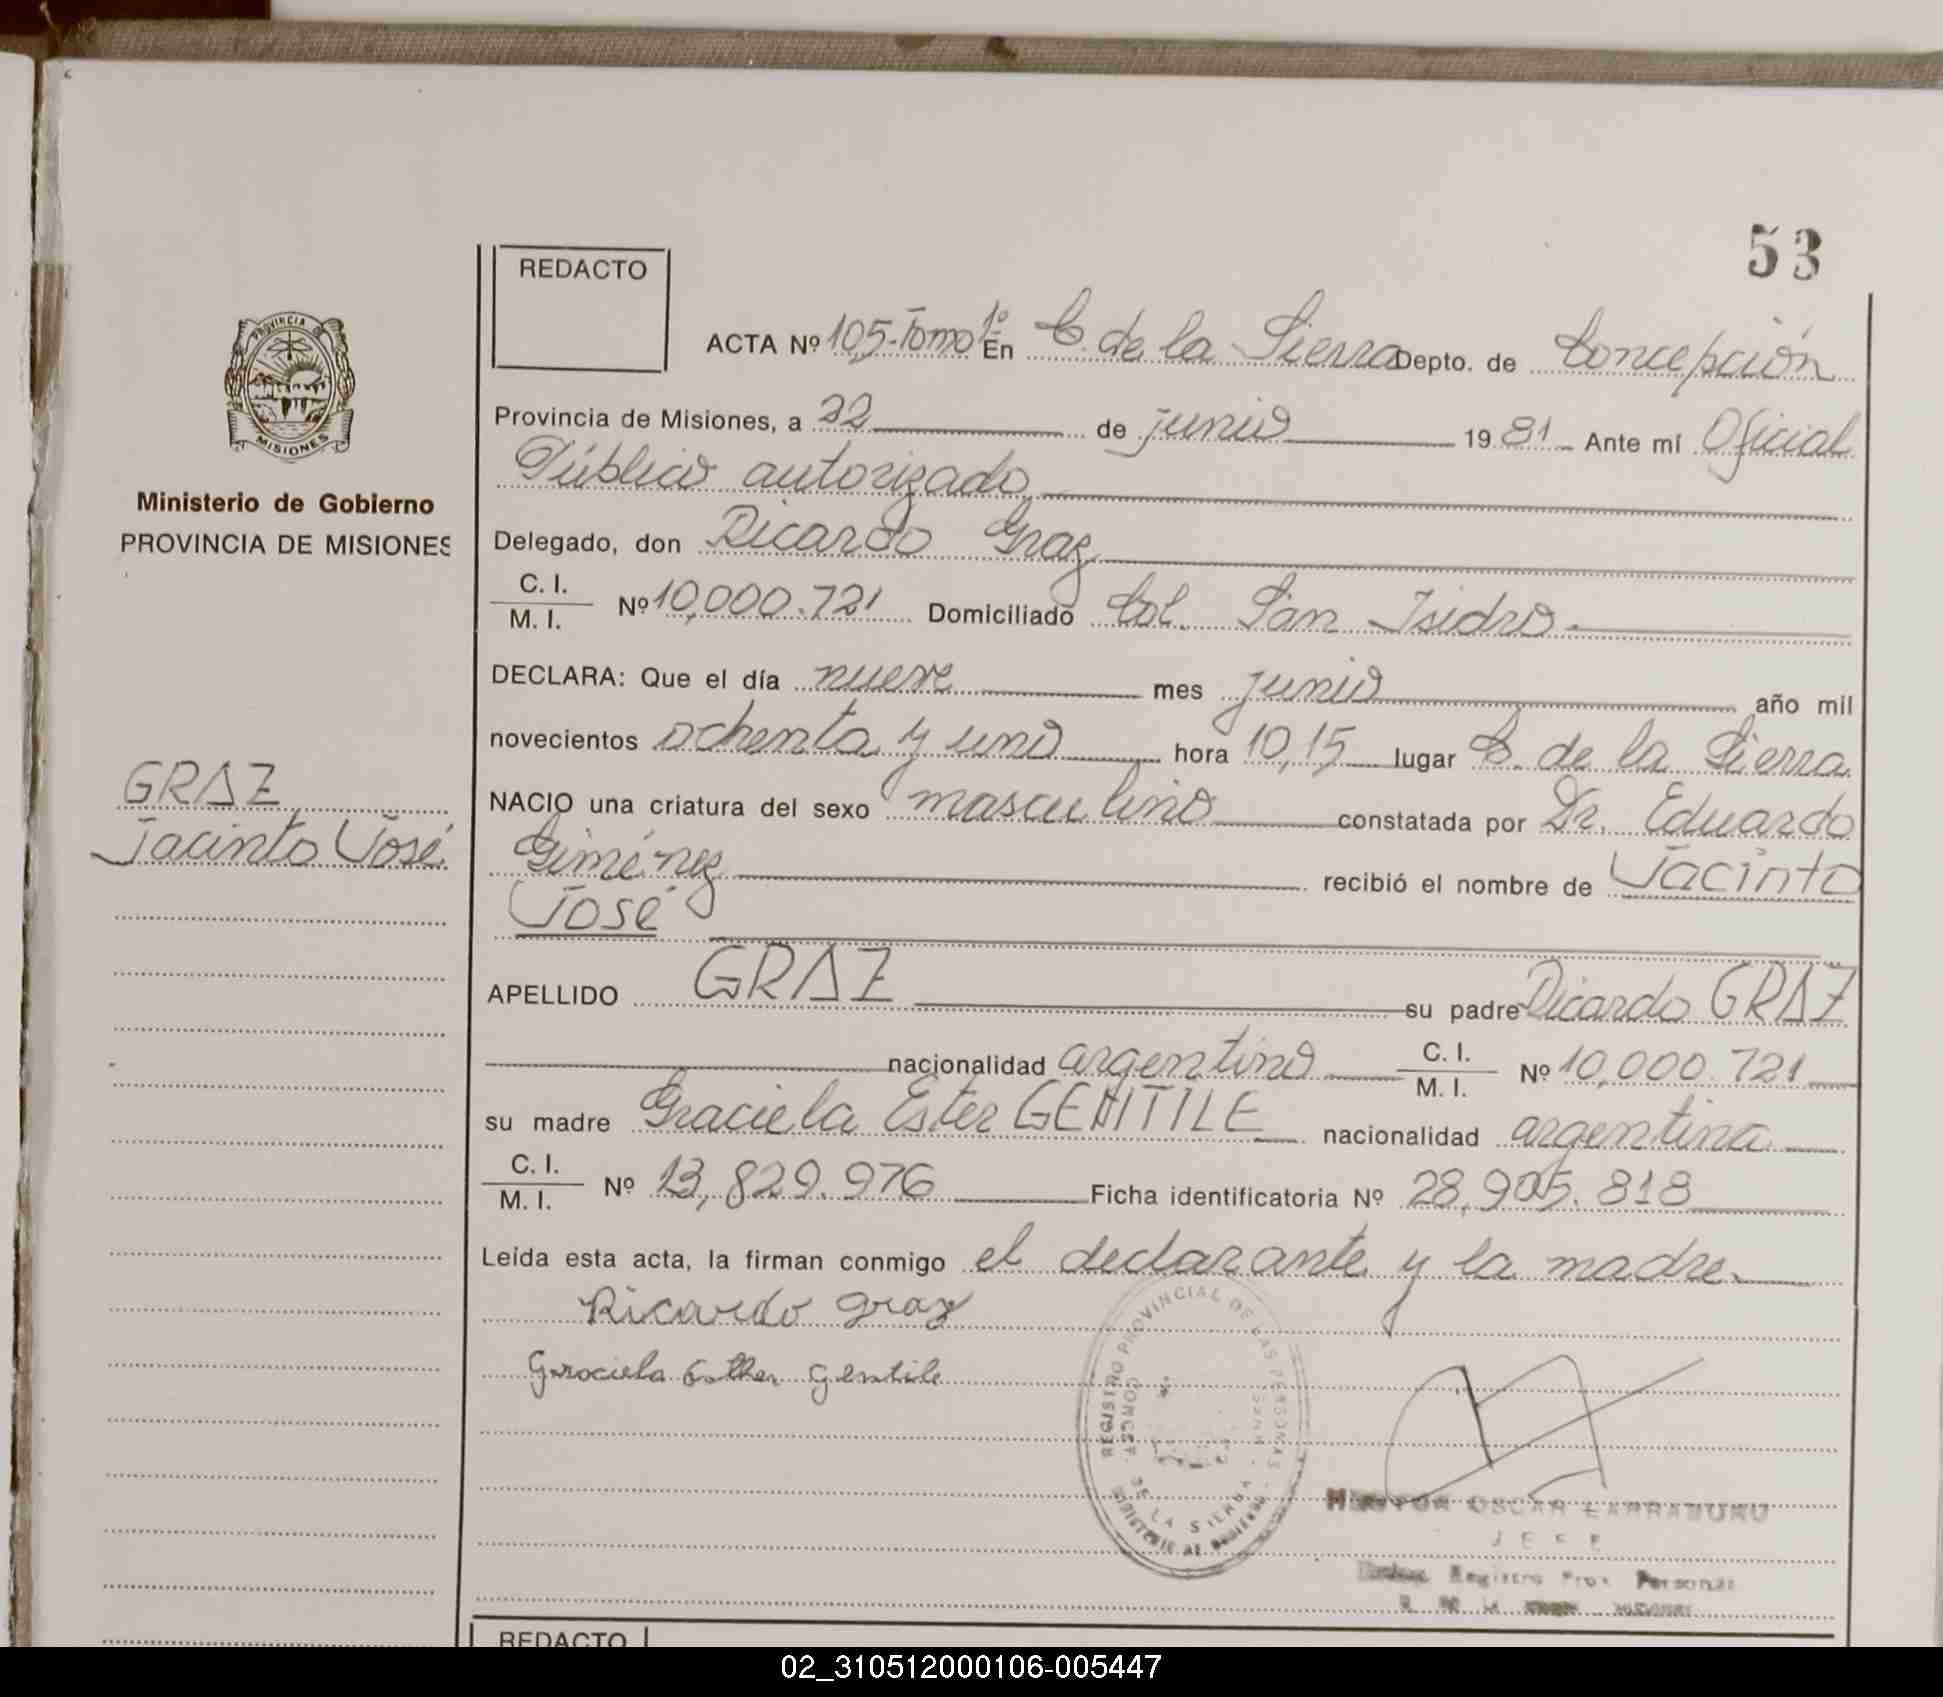 53
REDACTO
ACTA Nº 105-Tomo 1º En C. de la Sierra Depto. de Concepción
Provincia de Misiones, a 22 de junio 1981 Ante mí Oficial
Público autorizado
Delegado, don Ricardo Graz
C. I.
M. I. Nº 10,000.721 Domiciliado Col. San Isidro.
DECLARA: Que el día nueve mes junio año mil
novecientos ochenta y uno hora 10,15 lugar C. de la Sierra
NACIO una criatura del sexo masculino constatada por Dr. Eduardo
Giménez recibió el nombre de Jacinto
José
APELLIDO GRAZ su padre Ricardo GRAZ
nacionalidad argentino C. I. M. I. Nº 10,000.721
su madre Graciela Ester GENTILE nacionalidad argentina
C. I.
M. I. Nº 13,829.976 Ficha identificatoria Nº 28,905.818
Leída esta acta, la firman conmigo el declarante y la madre.
Ricardo Graz
Graciela Esther Gentile
PROVINCIA DE
MISIONES
Ministerio de Gobierno
PROVINCIA DE MISIONES
GRAZ
Jacinto José
REGISTRO PROVINCIAL DE LAS PERSONAS
DE LA SIERRA
OSCAR LARRABURU
JEFE
Registro Prov. Personas
REDACTO
02_310512000106-005447